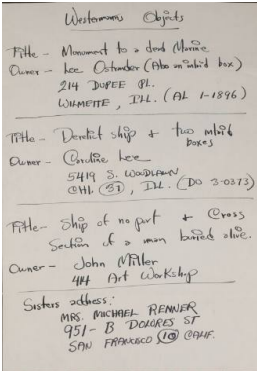 Westermanns Objects
Title - Monument to a dead Marine
Owner - Lee Ostrander (Also an inlaid box)
214 DUPEE PL.
WILMETTE, ILL. (AL 1-1896)
Title - Derelict ship & two inlaid
boxes
Owner - Caroline Lee
5419 S. WOODLAWN
CHI. 37, ILL. (DO 3-0373)
Title - Ship of no port & Cross
Section of a man buried alive.
Owner - John Miller
414 Art Workshop
Sisters address:
MRS. MICHAEL RENNER
951-B DOLORES ST
SAN FRANCISCO 10 CALIF.